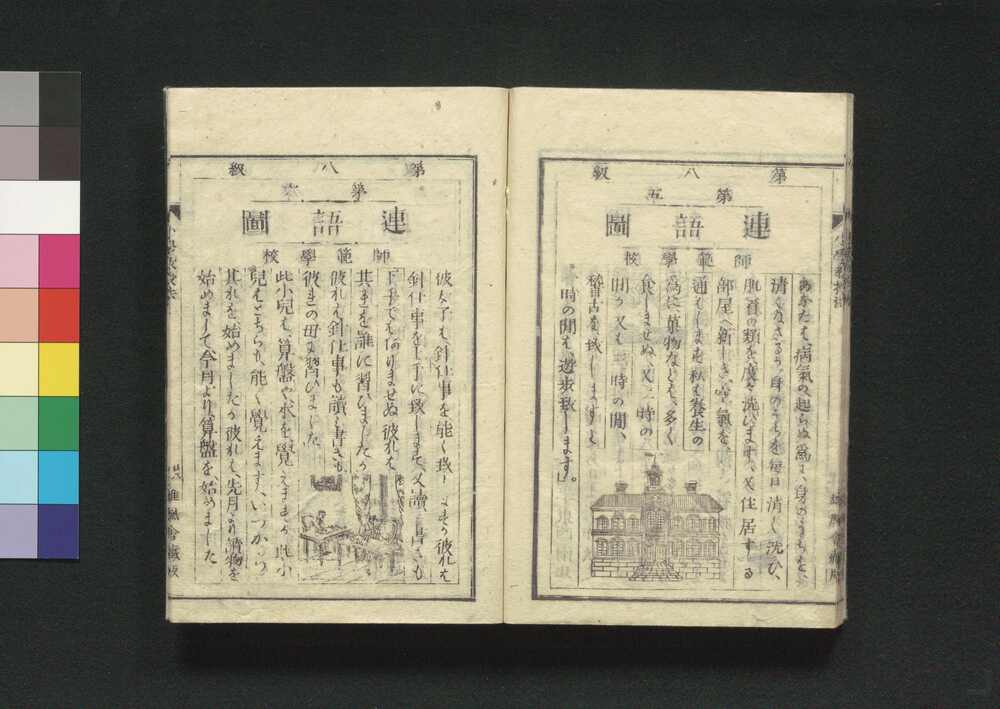 第八級
第五
連語圖
師範學校
あなたも、病氣の、起らぬ爲に、身のうちを、
清くなさるか、身のうちを毎日清く洗ひ、
肌着の類を、度々洗ひます、又住居する
部屋へ、新しき、空氣を、
通しまする、私も養生の
爲に菓物なども、多く
食しませぬ、又一時の
間か又も二時の間、
稽古を致しますると
一時の間も、遊歩致します。
第八級
第六
連語圖
師範學校
彼女子も、針仕事を能く致しますか彼れも
針仕事を上手に致します、又讀書きも
下手でも何りませぬ彼れも
其れを誰に習ひましたか
彼れも針仕事も讀み書きも
彼れの母に習ひました
此小兒も、算盤や本を、覺えますか此小
兒もどちらも、能く覺えます、いつから
其れを始めましたか彼れも、先月より讀物を
始めまして今月より、算盤を、始めました